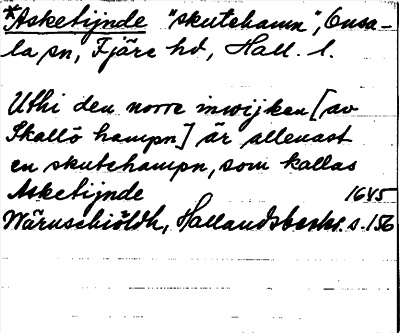 *Asketijnde "skutehamn", Onsa-
la sn, Fjäre hd, Hall. l.
Uthi den norre inwijken [av
Skallö hampn] är allenast
en skutehampn, som kallas
Asketijnde 1645
Wärnschiöldh, Hallandsbeskr. s. 156